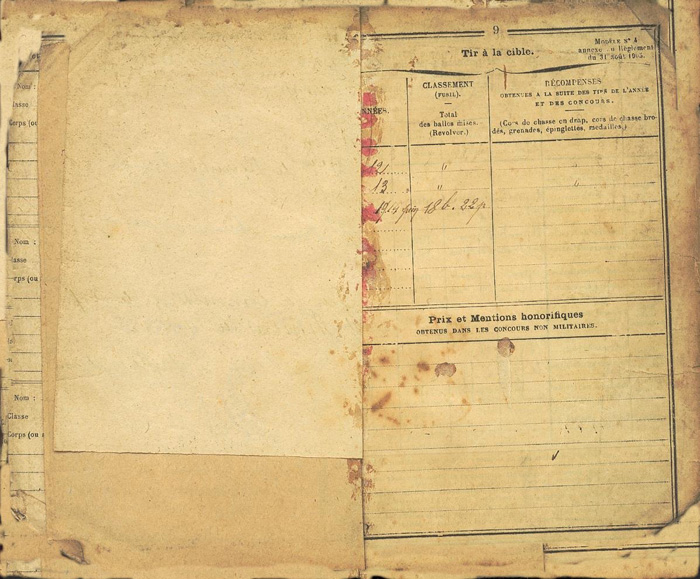 Nom :
Classe
Corps (ou
Nom :
Corps (ou
Nom :
Classe
Corps (ou
9
Tir à la cible.
MODÈLE N° 4
annexé au Règlement
du 31 août 1905.
ANNÉES.
CLASSEMENT
(FUSIL).
Total
des balles mises.
(Revolver.)
RÉCOMPENSES
OBTENUES A LA SUITE DES TIRS DE L'ANNÉE
ET DES CONCOURS.
(Cors de chasse en drap, cors de chasse bro-
dés, grenades, épinglettes, médailles.)
12 " "
13 " "
1914 18 b. 22 p
Prix et Mentions honorifiques
OBTENUS DANS LES CONCOURS NON MILITAIRES.